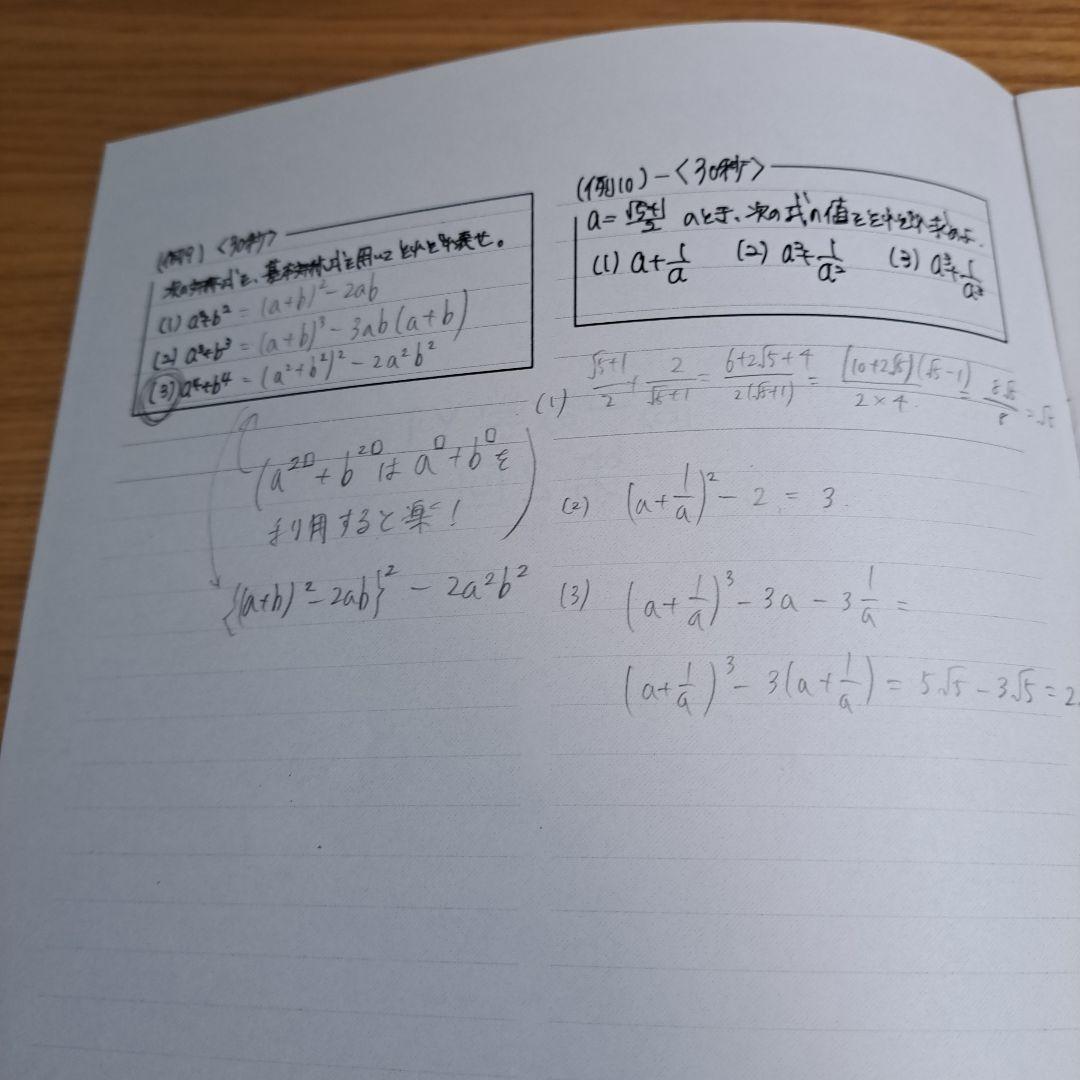 (例9) <30秒>
次の対称式を、基本対称式を用いてそれぞれ表せ。
(1) a²+b² = (a+b)² - 2ab
(2) a³+b³ = (a+b)³ - 3ab(a+b)
(3) a⁴+b⁴ = (a²+b²)² - 2a²b²
(a²ᴰ + b²ᴰ は aᴰ + bᴰ を
利用すると楽!)
{(a+b)² - 2ab}² - 2a²b²
(例10) - <30秒>
a = (√5+1)/2 のとき、次の式の値をそれぞれ求めよ.
(1) a + 1/a (2) a² + 1/a² (3) a³ + 1/a³
(1) (√5+1)/2 + 2/(√5+1) = (6+2√5+4)/(2(√5+1)) = (10+2√5)(√5-1)/(2×4) = 8√5/8 = √5
(2) (a + 1/a)² - 2 = 3.
(3) (a + 1/a)³ - 3a - 3 1/a =
(a + 1/a)³ - 3(a + 1/a) = 5√5 - 3√5 = 2